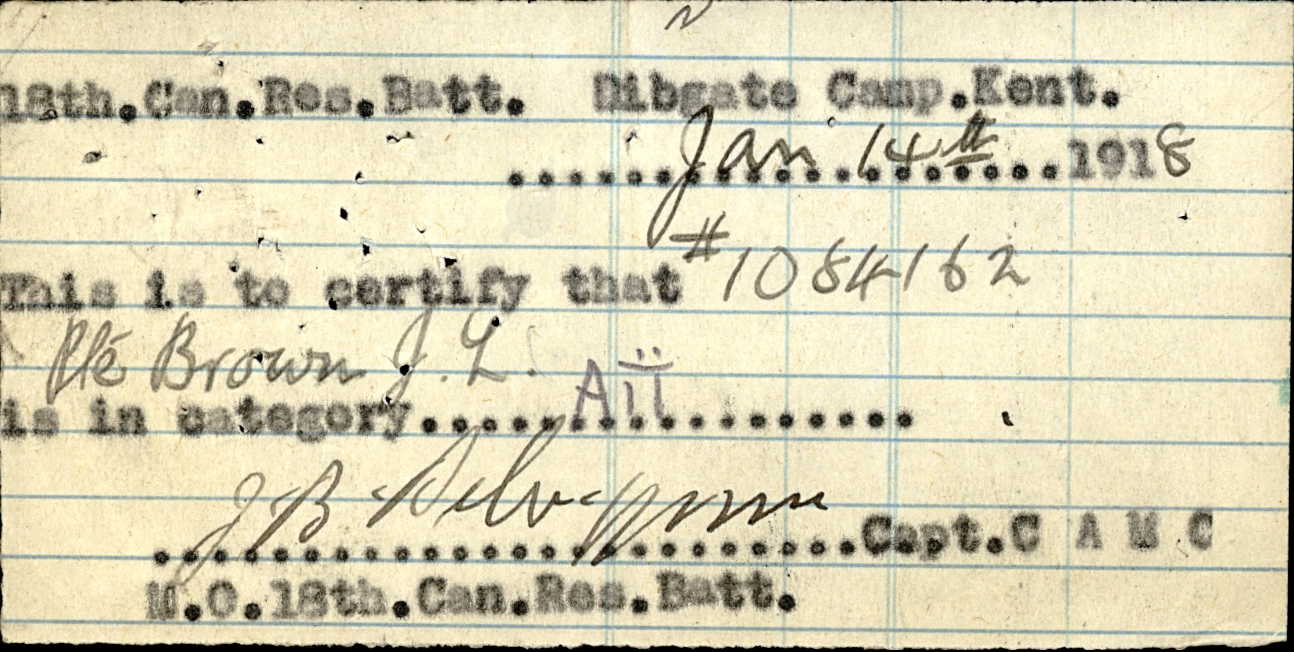 18th.Can.Res.Batt. Dibgate Camp.Kent.
Jan 14th 1918
This is to certify that #1084162
Pte Brown J. L.
is in category......Aii..................
J B
........................Capt.C A M C
M.O.18th.Can.Res.Batt.